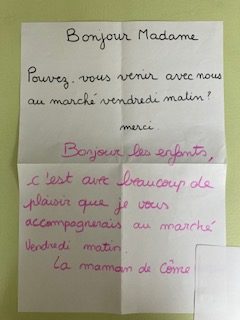 Bonjour Madame
Pouvez-vous venir avec nous
au marché vendredi matin?
merci.
Bonjour les enfants,
c'est avec beaucoup de
plaisir que je vous
accompagnerais au marché
Vendredi matin.
La maman de Côme